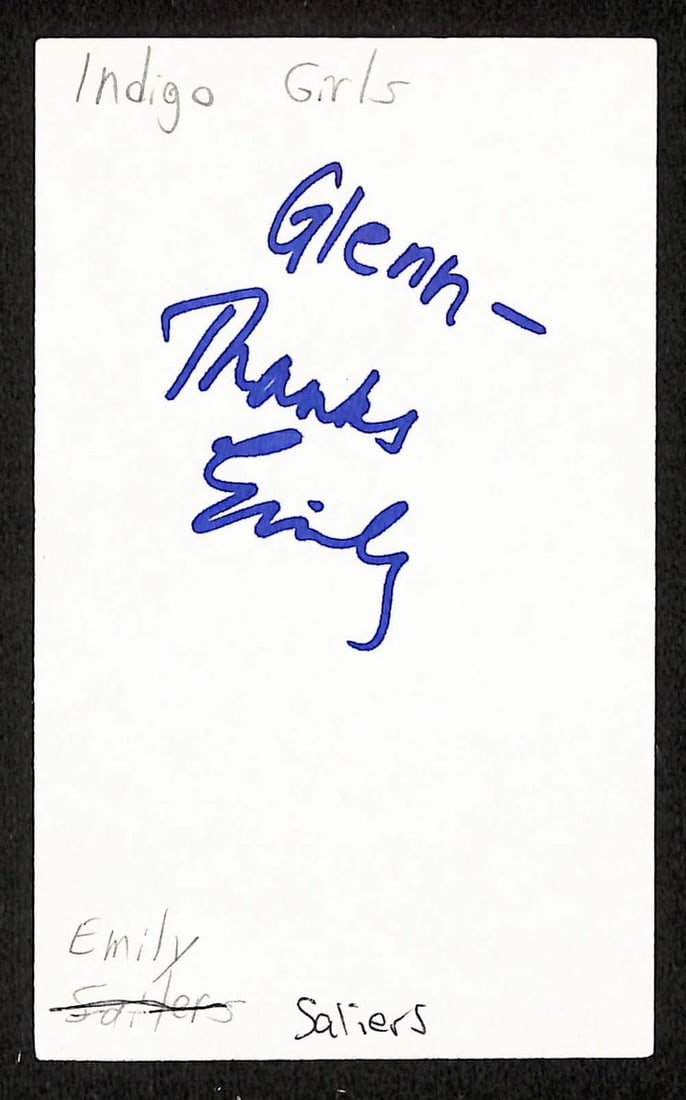 Indigo Girls
Glenn -
Thanks
Emily
Emily
Saliers